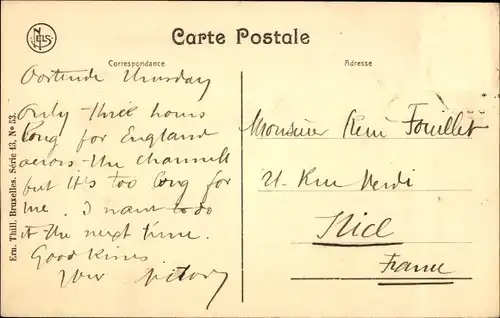 NELS
Carte Postale
Correspondance
Adresse
Oostende Thursday
Only three hours
long for England
across the channell
but it's too long for
me. I want to do
it the next time.
Good Kisses
Ern. Thill, Bruxelles. Série 43, No 53.
Monsieur René Fouillet
21 Rue Verdi
Nice
France